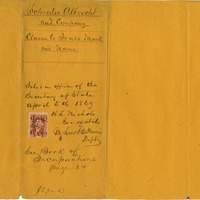 Schroder Albrecht
and Company
Claim to Trade Mark
and Name
Filed in office of the
Secretary of State
April 5th 1869
H. L. Nichols
Sec of State
By
Depty
See Book of
Incorporations
page 34